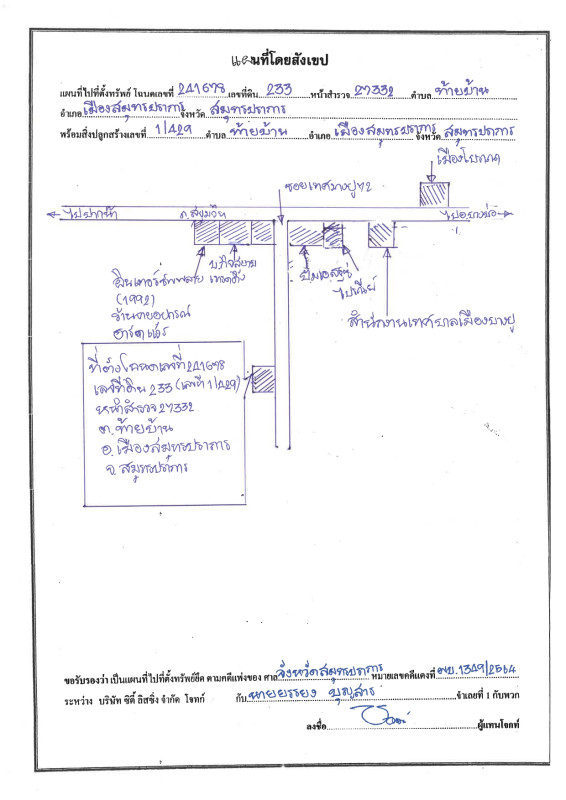 แผนที่โดยสังเขป
แผนที่ไปที่ตั้งทรัพย์ โฉนดเลขที่ 241678 เลขที่ดิน 233 หน้าสำรวจ 27332 ตำบล ท้ายบ้าน
อำเภอ เมืองสมุทรปราการ จังหวัด สมุทรปราการ
พร้อมสิ่งปลูกสร้างเลขที่ 1/429 ตำบล ท้ายบ้าน อำเภอ เมืองสมุทรปราการ จังหวัด สมุทรปราการ
เมืองโบราณ
ซอยเทศบางปู 72
ไปปากน้ำ
ถ.สุขุมวิท
ไปคลองด่าน
(1992)
ร้านขายอุปกรณ์
ปั๊มเอสโซ่
ไปรษณีย์
สำนักงานเทศบาลเมืองบางปู
ที่ตั้งโฉนดเลขที่ 241678
เลขที่ดิน 233 (เลขที่ 1/429)
หน้าสำรวจ 27332
ต. ท้ายบ้าน
อ. เมืองสมุทรปราการ
จ. สมุทรปราการ
ขอรับรองว่า เป็นแผนที่ไปที่ตั้งทรัพย์ยึด ตามคดีแพ่งของ ศาล จังหวัดสมุทรปราการ หมายเลขคดีแดงที่ ผบ.1349/2564
ระหว่าง บริษัท ซิตี้ ลิสซิ่ง จำกัด โจทก์ กับ นายบรรยง บุญสาร จำเลยที่ 1 กับพวก
ลงชื่อ ผู้แทนโจทก์